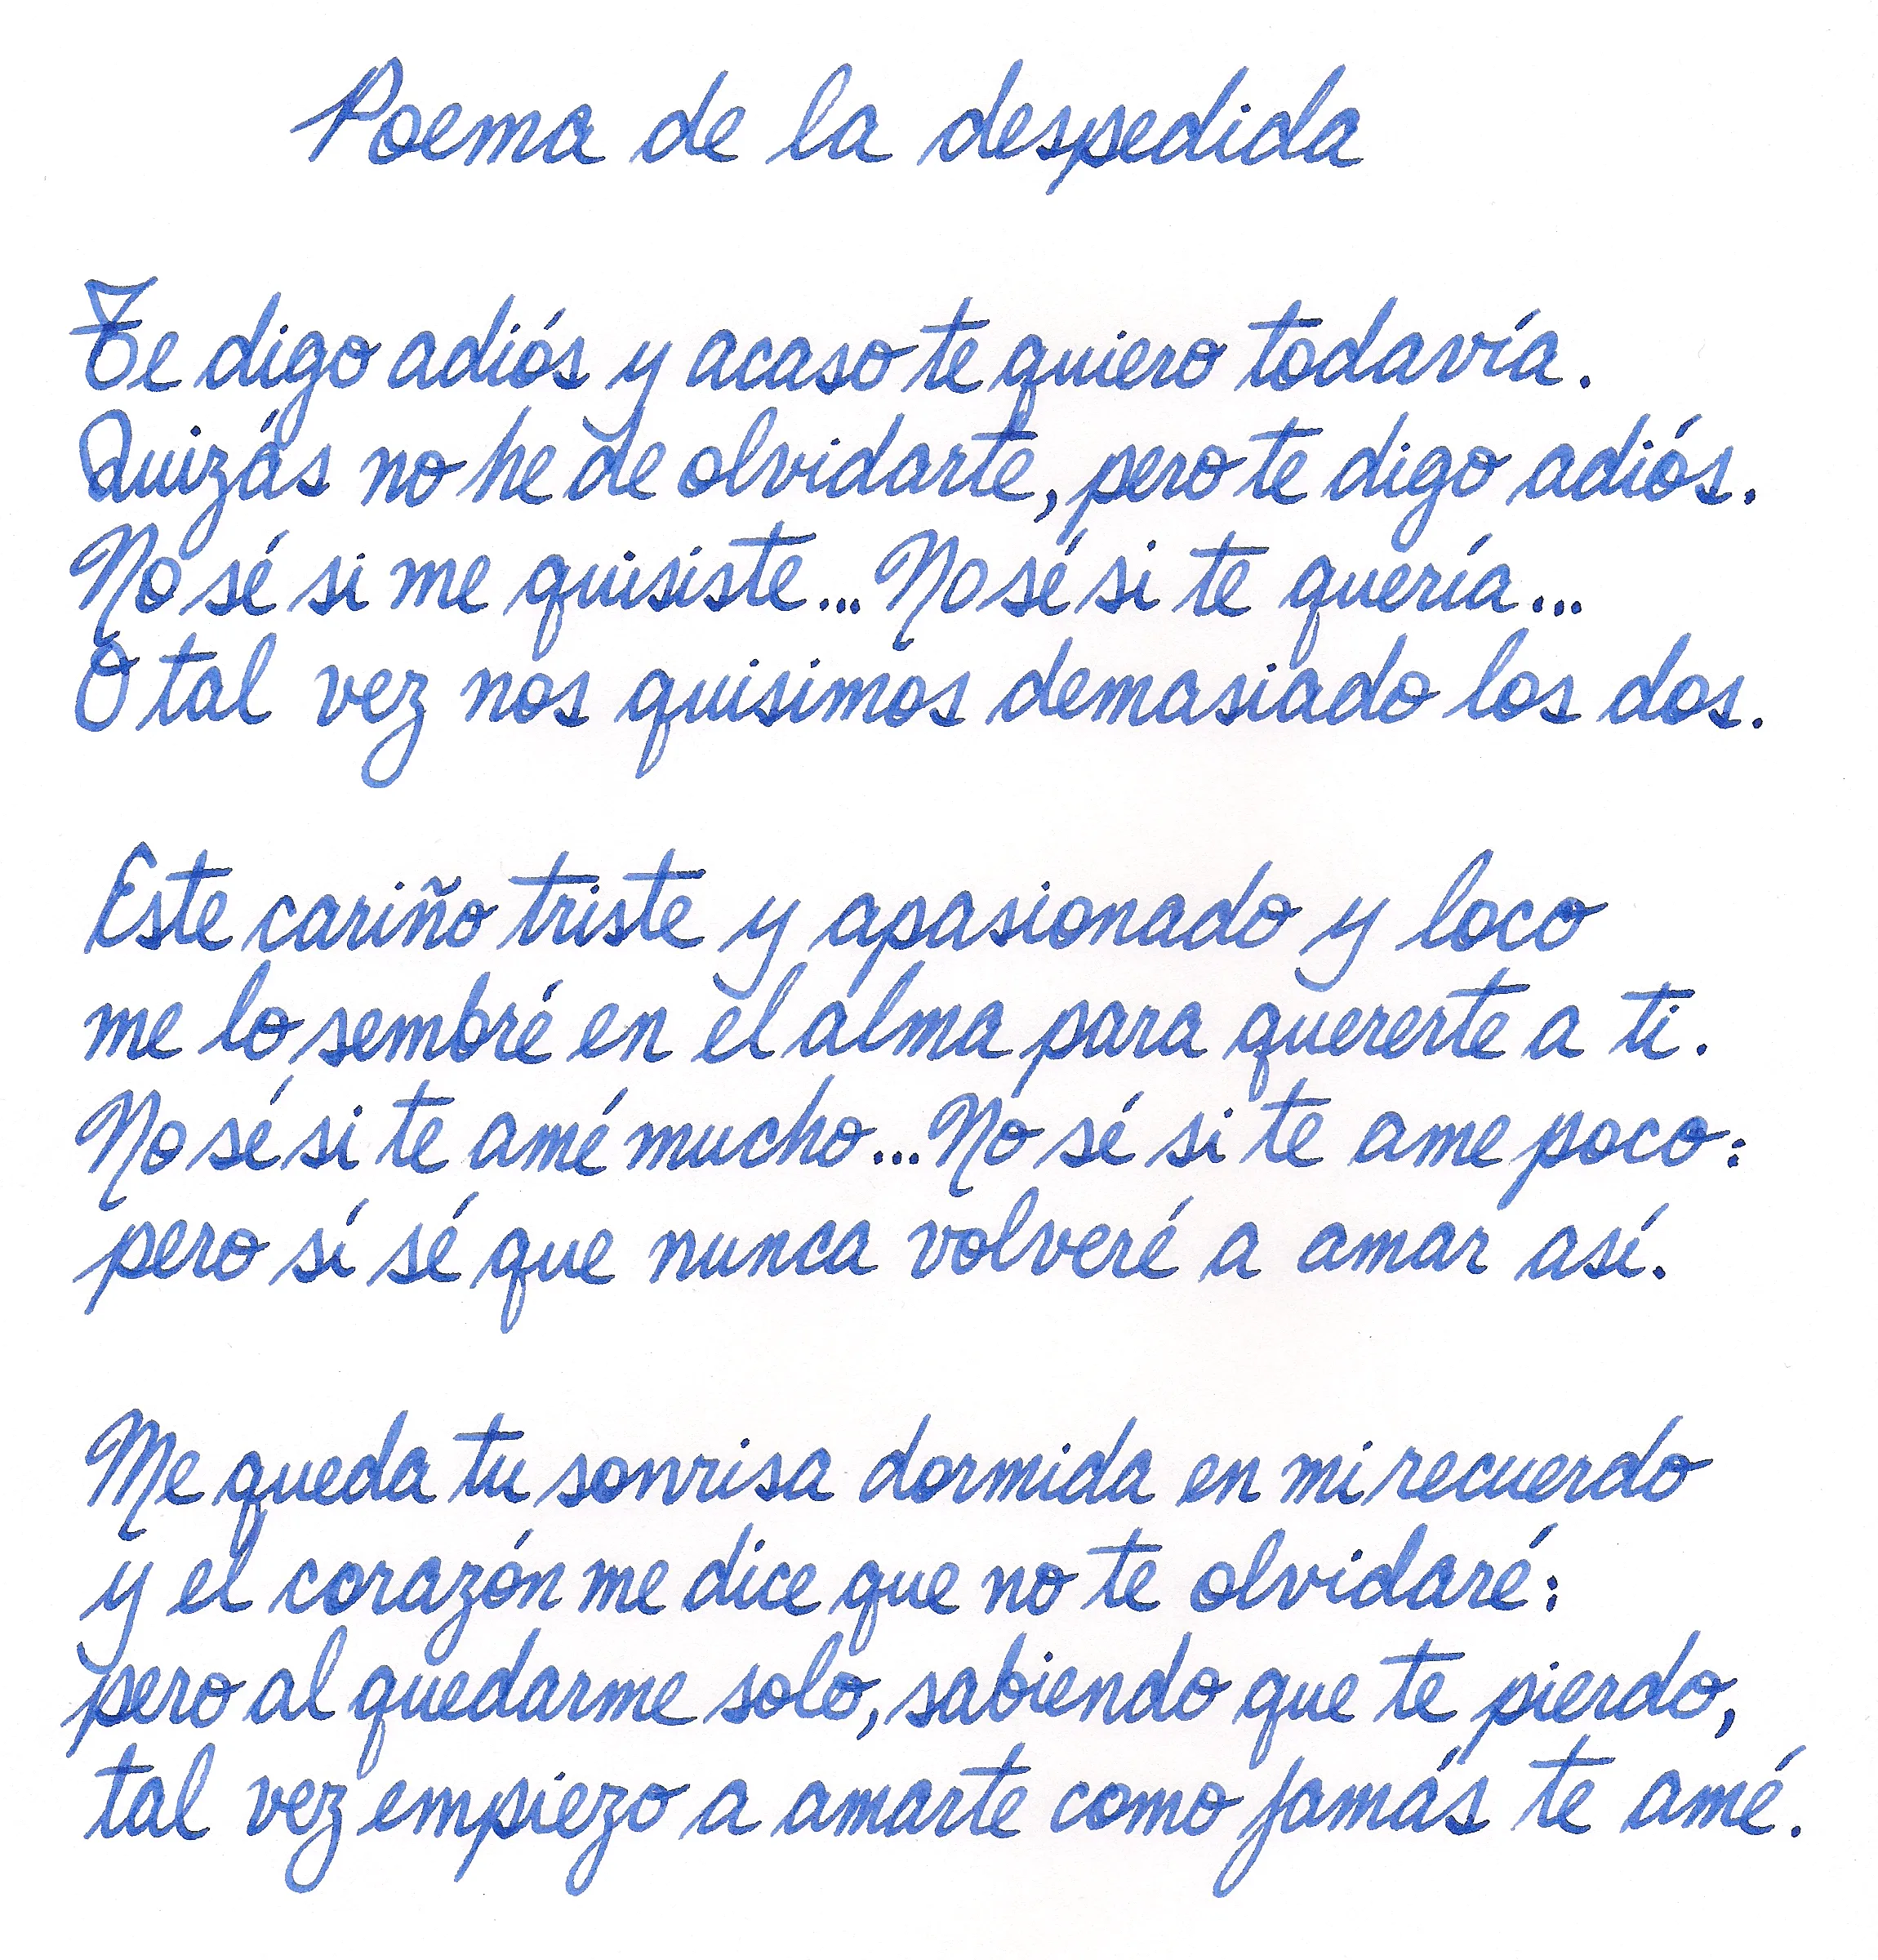 Poema de la despedida
Te digo adiós y acaso te quiero todavía.
Quizás no he de olvidarte, pero te digo adiós.
No sé si me quisiste... No sé si te quería...
O tal vez nos quisimos demasiado los dos.
Este cariño triste y apasionado y loco
me lo sembré en el alma para quererte a ti.
No sé si te amé mucho... No sé si te ame poco:
pero sí sé que nunca volveré a amar así.
Me queda tu sonrisa dormida en mi recuerdo
y el corazón me dice que no te olvidaré:
pero al quedarme solo, sabiendo que te pierdo,
tal vez empiezo a amarte como jamás te amé.